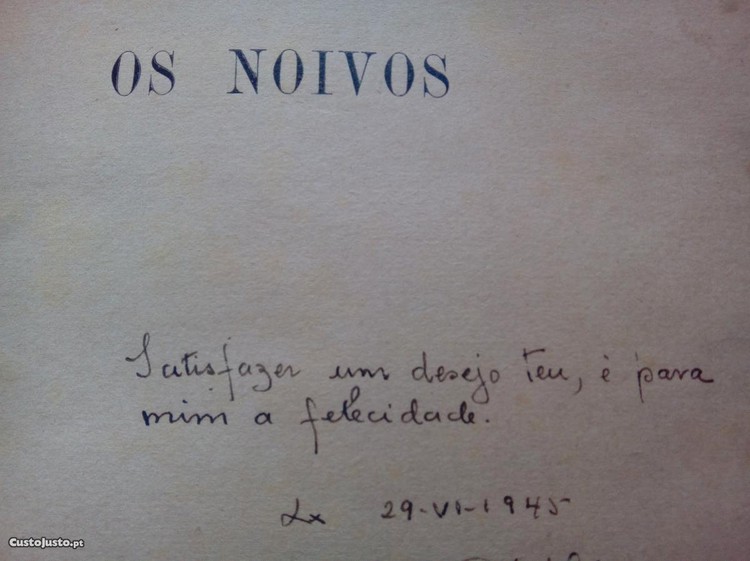 OS NOIVOS
Satisfazer um desejo teu, é para
mim a felecidade.
Lx 29-VI-1945
CustoJusto.pt